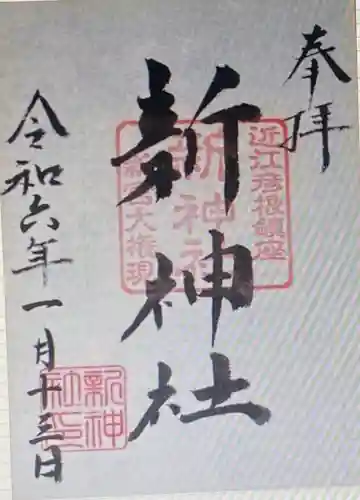 奉拝
近江彦根鎮座
新神社
新宮大権現
新神社
令和六年一月十三日
新神
社印